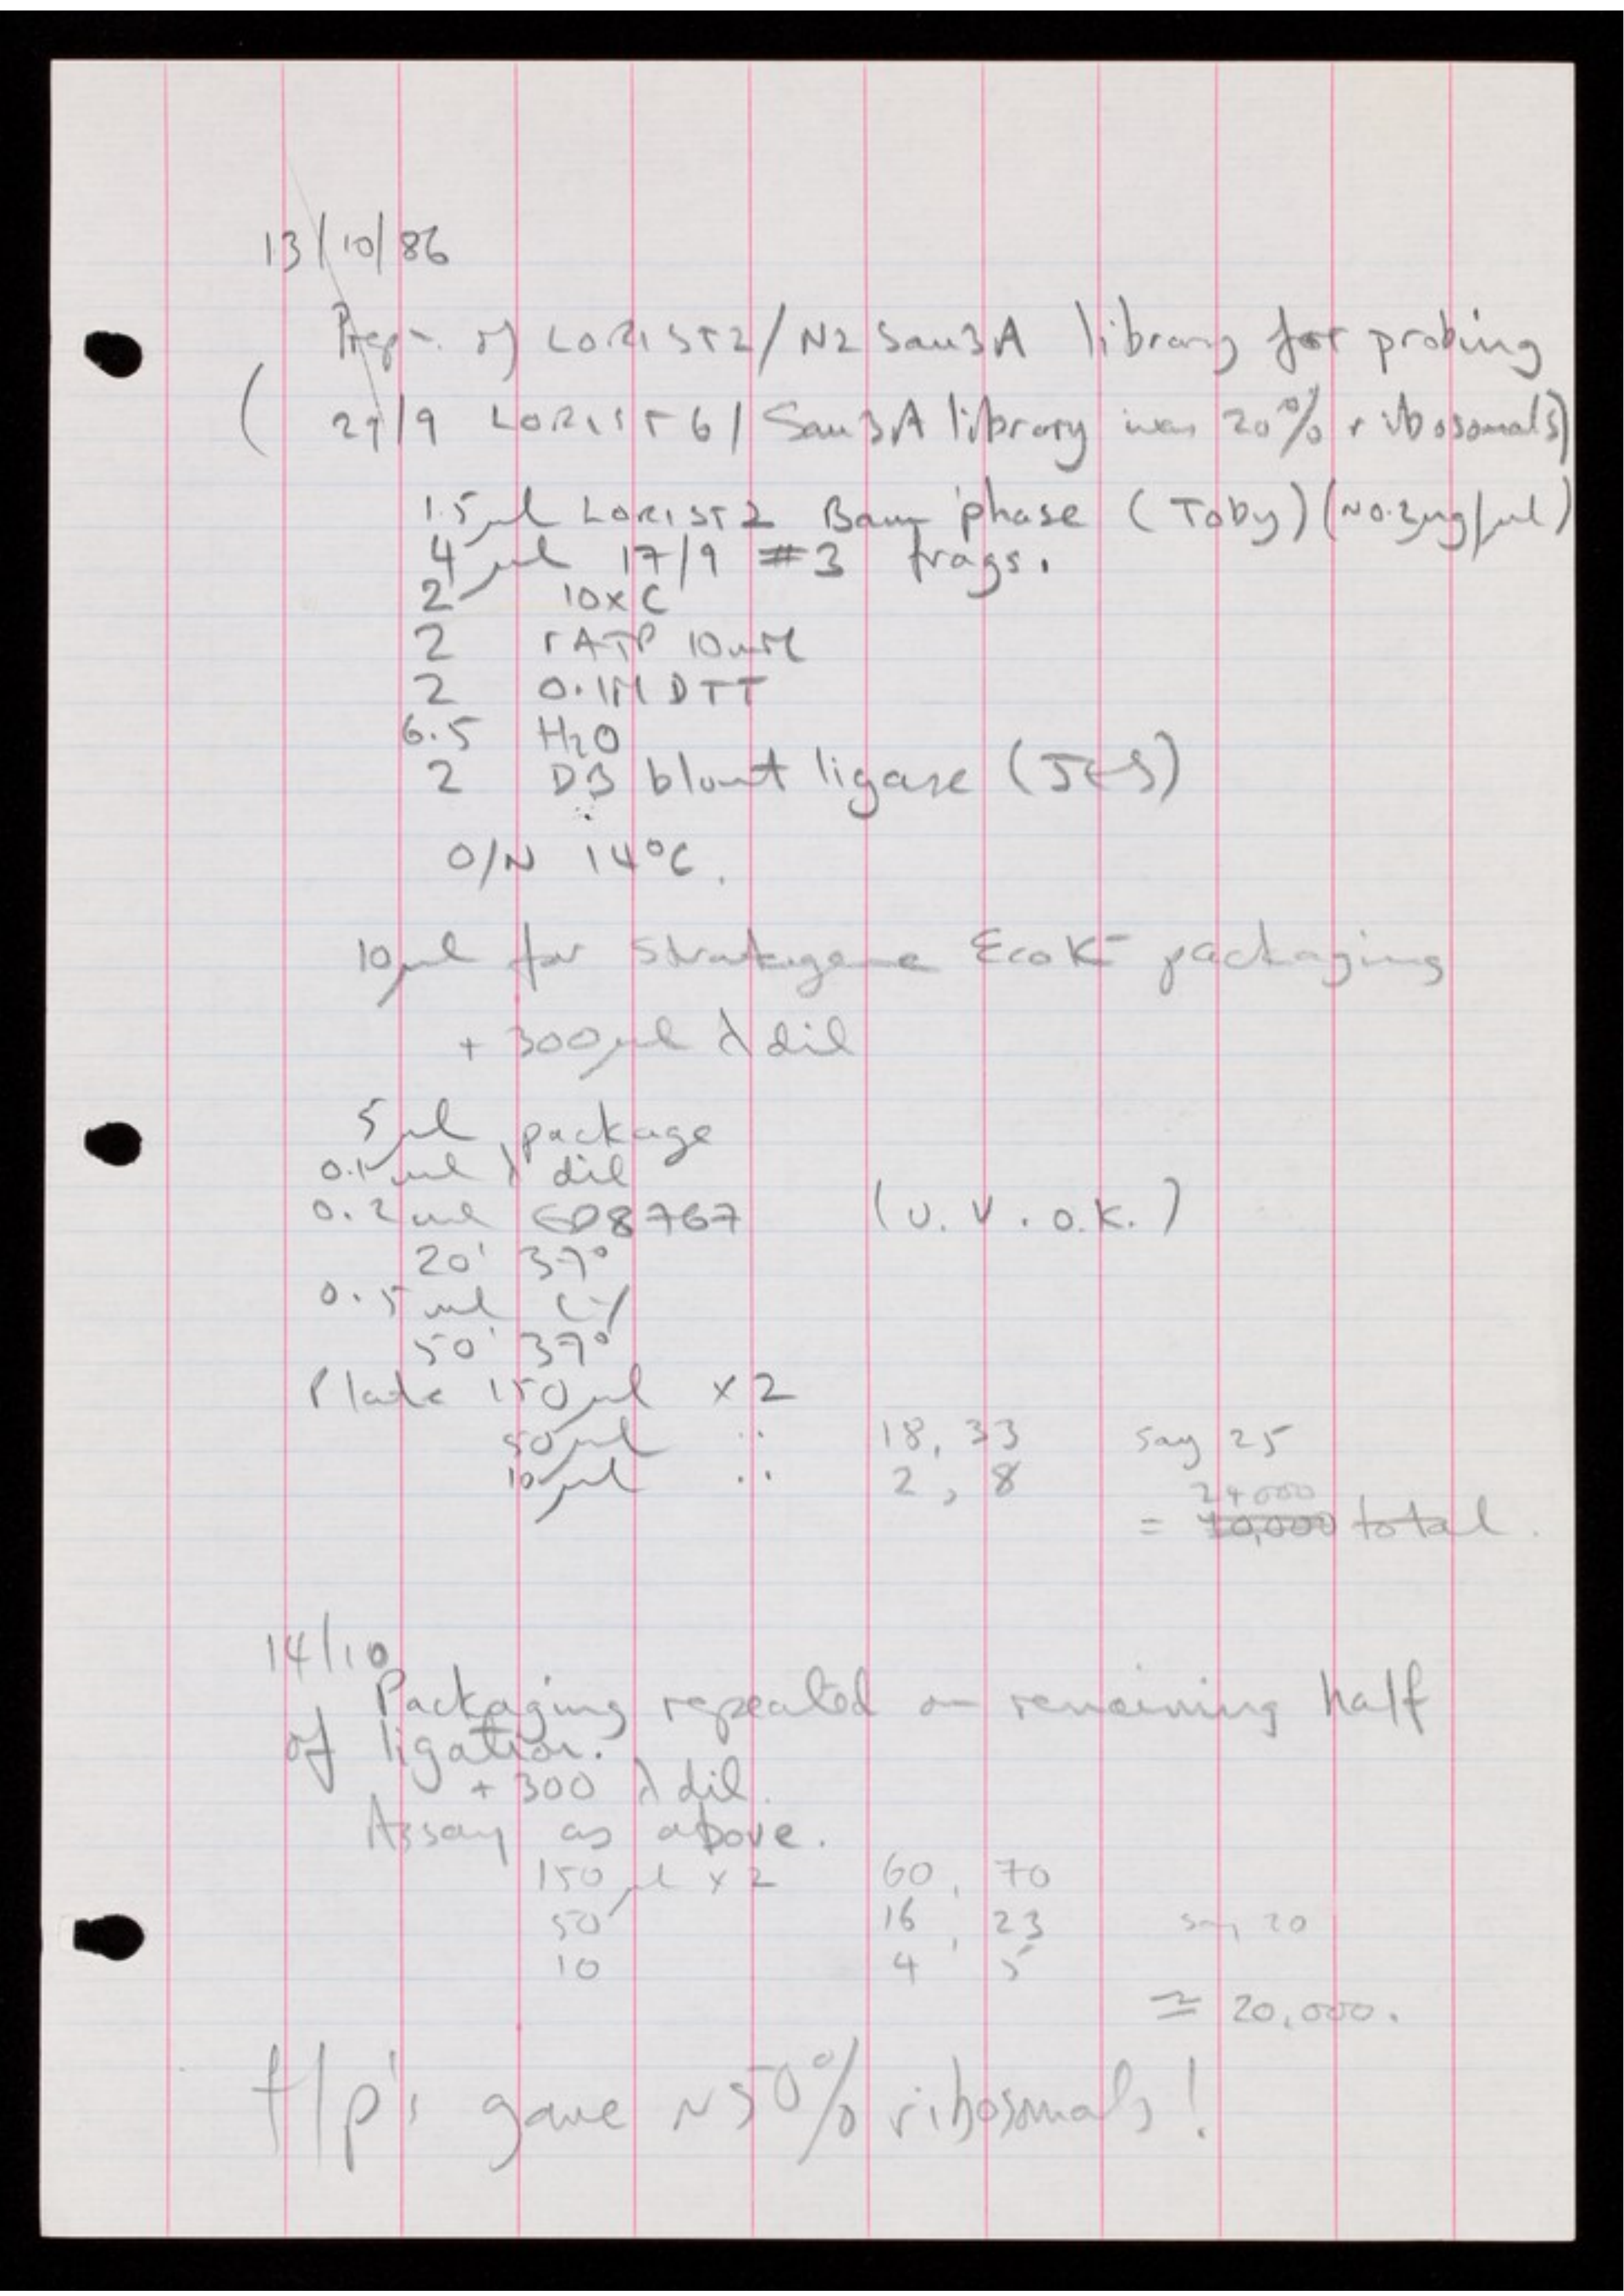 13/10/86
Prepn. of LORIST2/N2 Sau3A library for probing
(29/9 LORIST6/Sau3A library was 20% ribosomals)
1.5µl LORIST2 Bam 'phase (Toby) (~0.2mg/µl)
4µl 17/9 #3 frags.
2 10xC
2 rATP 10mM
2 0.1M DTT
6.5 H2O
2 DB blunt ligase (JES)
O/N 14°C.
10µl for Stratagene EcoK- packaging
+ 300µl λ dil
5µl package
0.1ml λ dil
0.2ml ED8767 (U.V. O.K.)
20' 37°
0.5ml CY
50' 37°
Plate 150µl x2
50µl ∵ 18, 33 say 25
10µl ∵ 2, 8 24000
= 10,000 total.
14/10
Packaging repeated on remaining half
of ligation.
+ 300 λ dil.
Assay as above.
150µl x2 60, 70
50 16, 23 say 20
10 4, 5
≃ 20,000.
f/p's gave ~50% ribosomals!